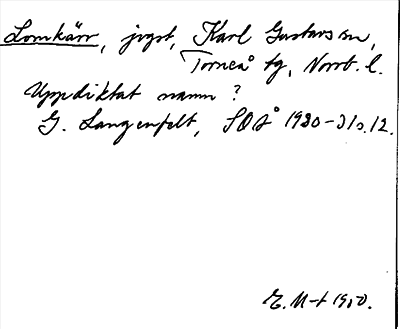 Lomkärr, jvgst, Karl Gustavs sn,
Torneå tg, Norrb. l.
Uppdiktat namn?
G. Langenfelt, SOÅ 1930-31 s. 12.
E. M-t 1950.